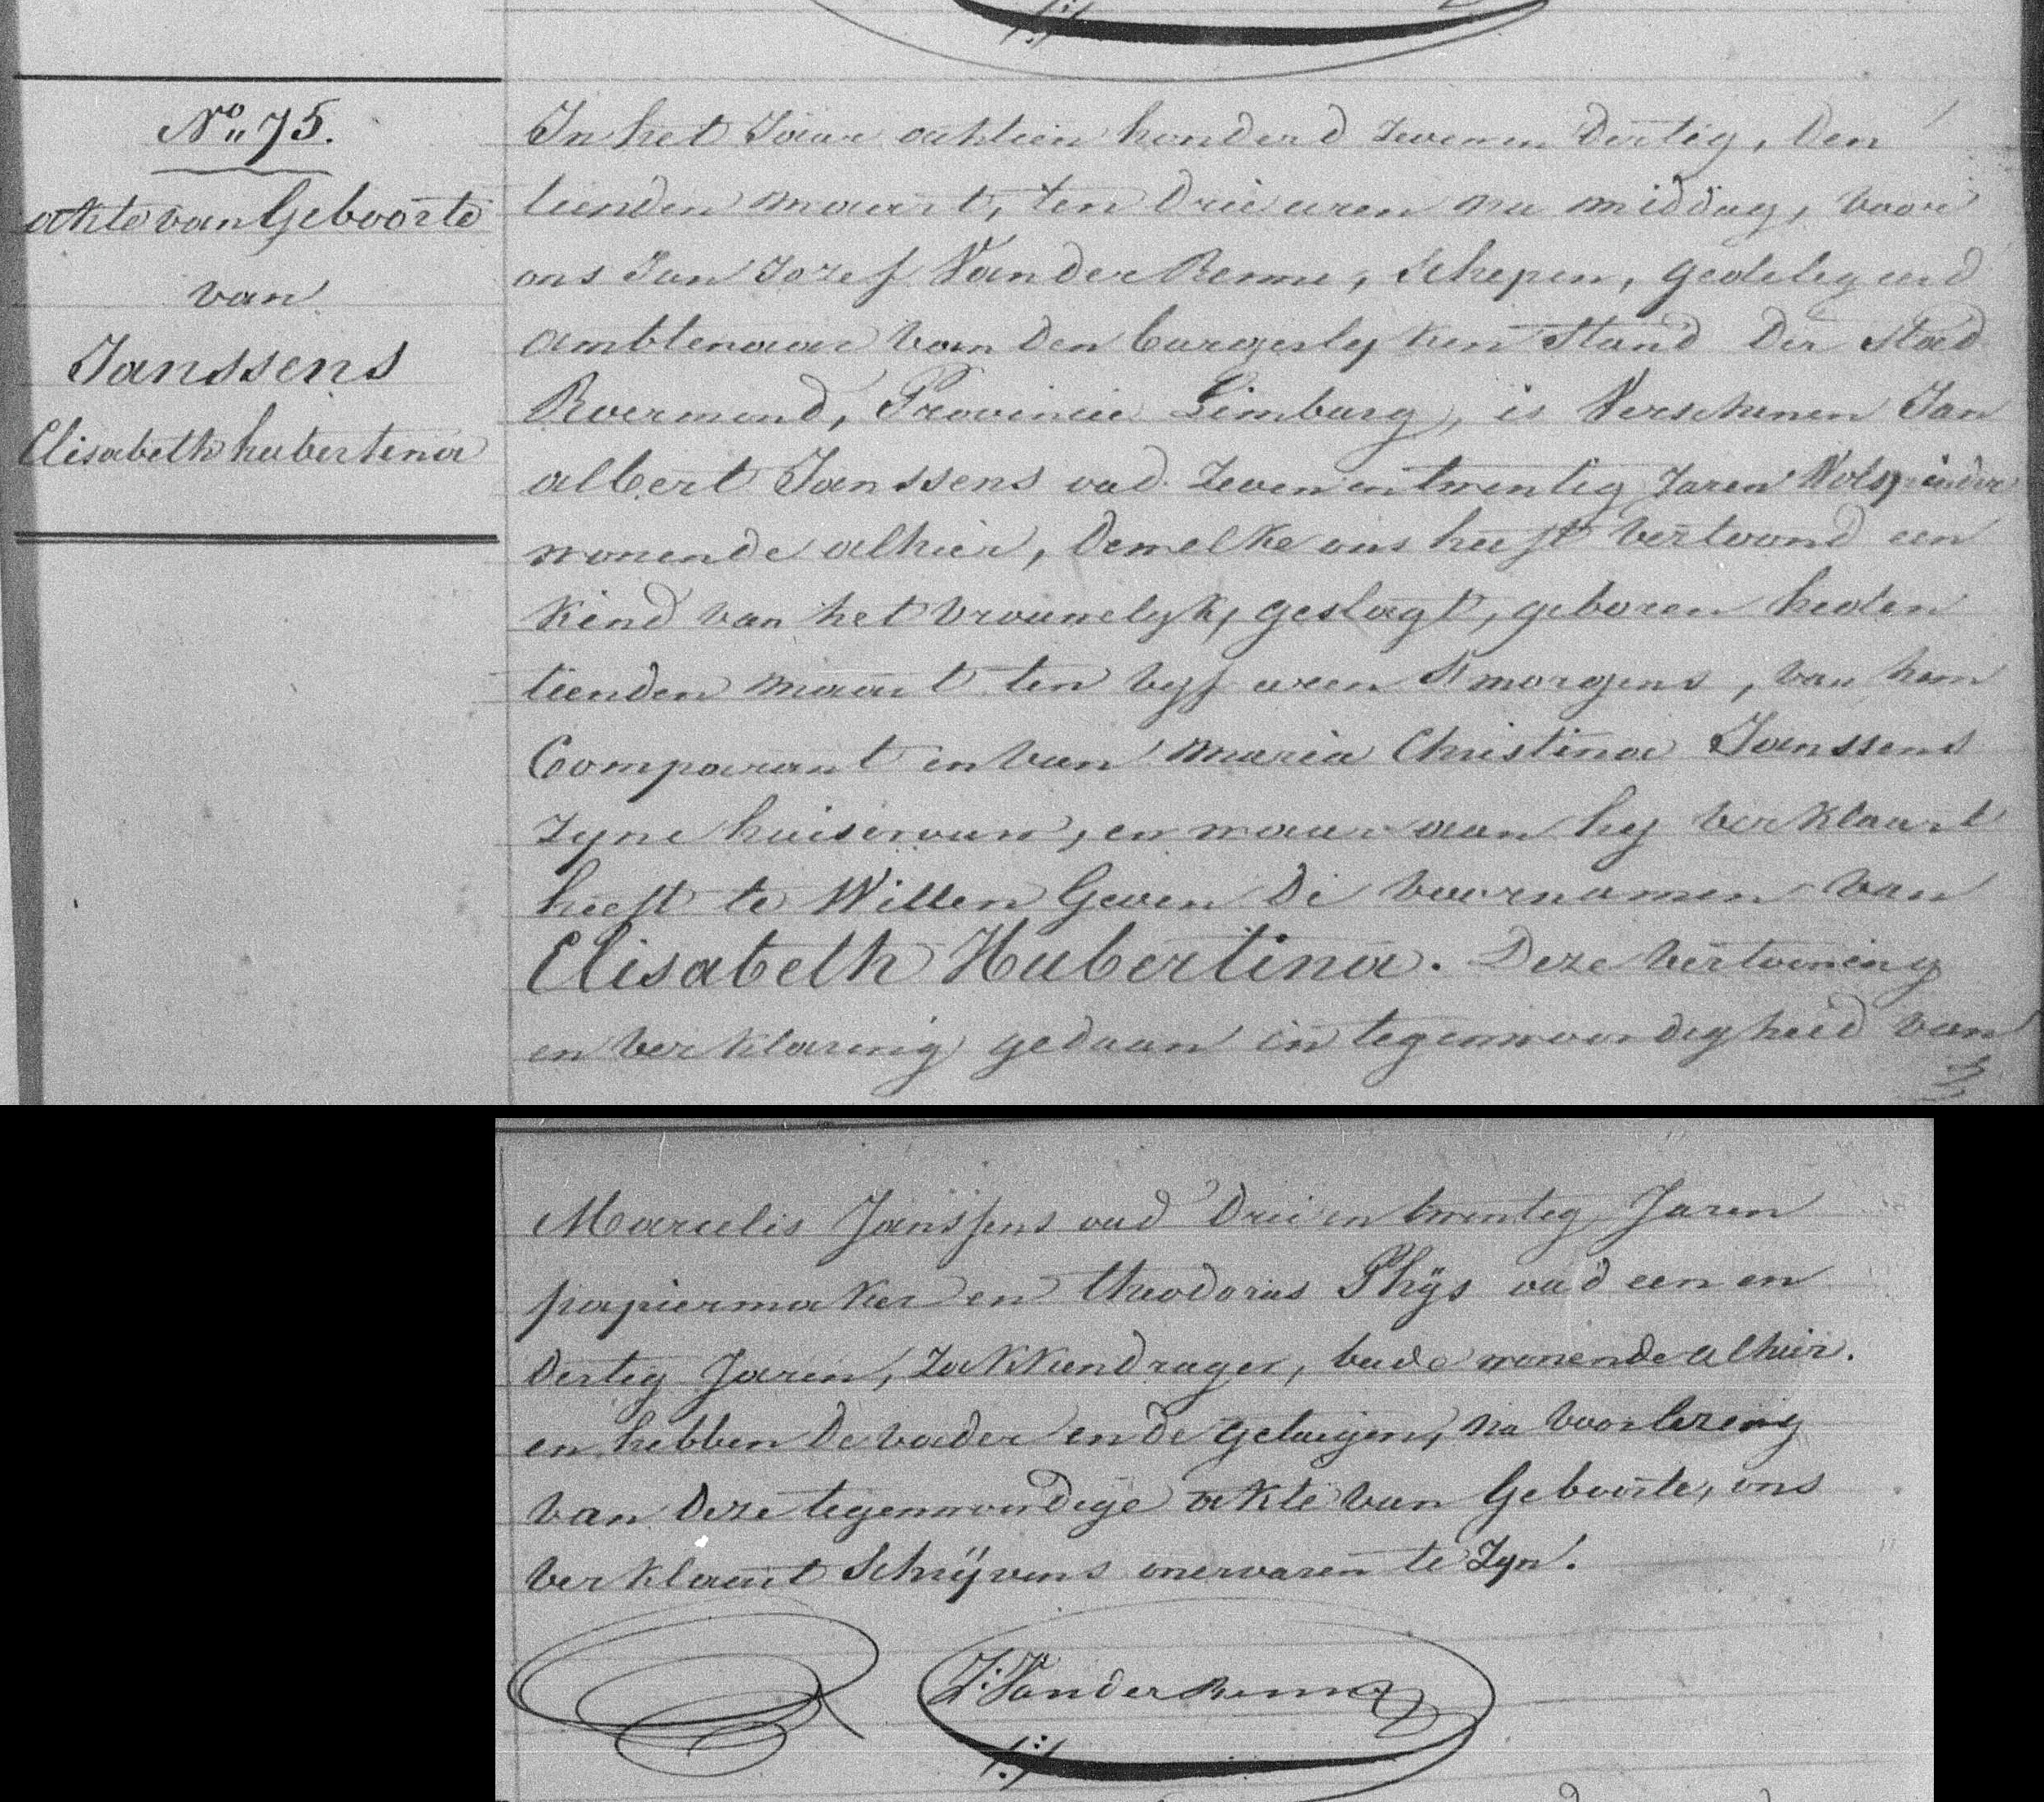 No 75.
akte van Geboorte
van
Janssens
Elisabeth hubertina
In het Jaar achtien honderd zeven en dertig, den
tienden maart, ten drie uren na middag, voor
ons Jan Jozef Vander Renne, Schepen, gedelegeerd
ambtenaar van den burgerlyken Stand der Stad
Roermond, Provincie Limburg, is Verschenen Jan
albert Janssens oud zeven en twentig Jaren Wolspinder
wonende alhier, dewelke ons heeft vertoond een
Kind van het vrouwelyk, geslagt, geboren heden
tienden maart ten vyf uren S'morgens, van hem
Comparant en van maria Christina Janssens
zyne huisvrouw, en waar aan hy verklaart
heeft te Willen Geven de voornamen van
Elisabeth Hubertina. Deze vertooning
en verklaring gedaan in tegenwoordigheid van
Marcelis Janssens oud drie en twentig Jaren
papiermaker en theodorus Thÿs oud een en
dertig Jaren, zakkendrager, beide wonende alhier.
en hebben de vader en de getuigen, na voorlezing
van deze tegenwoordige akte van Geboorte, ons
verklaart Schryvens onervaren te Zyn.
J: Vander Renne